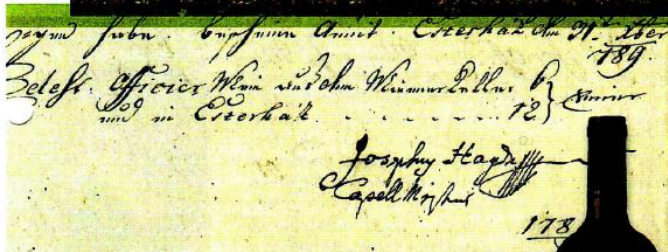 habe. bescheine Amit. Esterház den 31t Xber
789
Officier Wein aus dem Wienner Keller 6
und in Esterház . . . . . . . 12 } Eimer
Josephus Haydn
Capell Mster
178